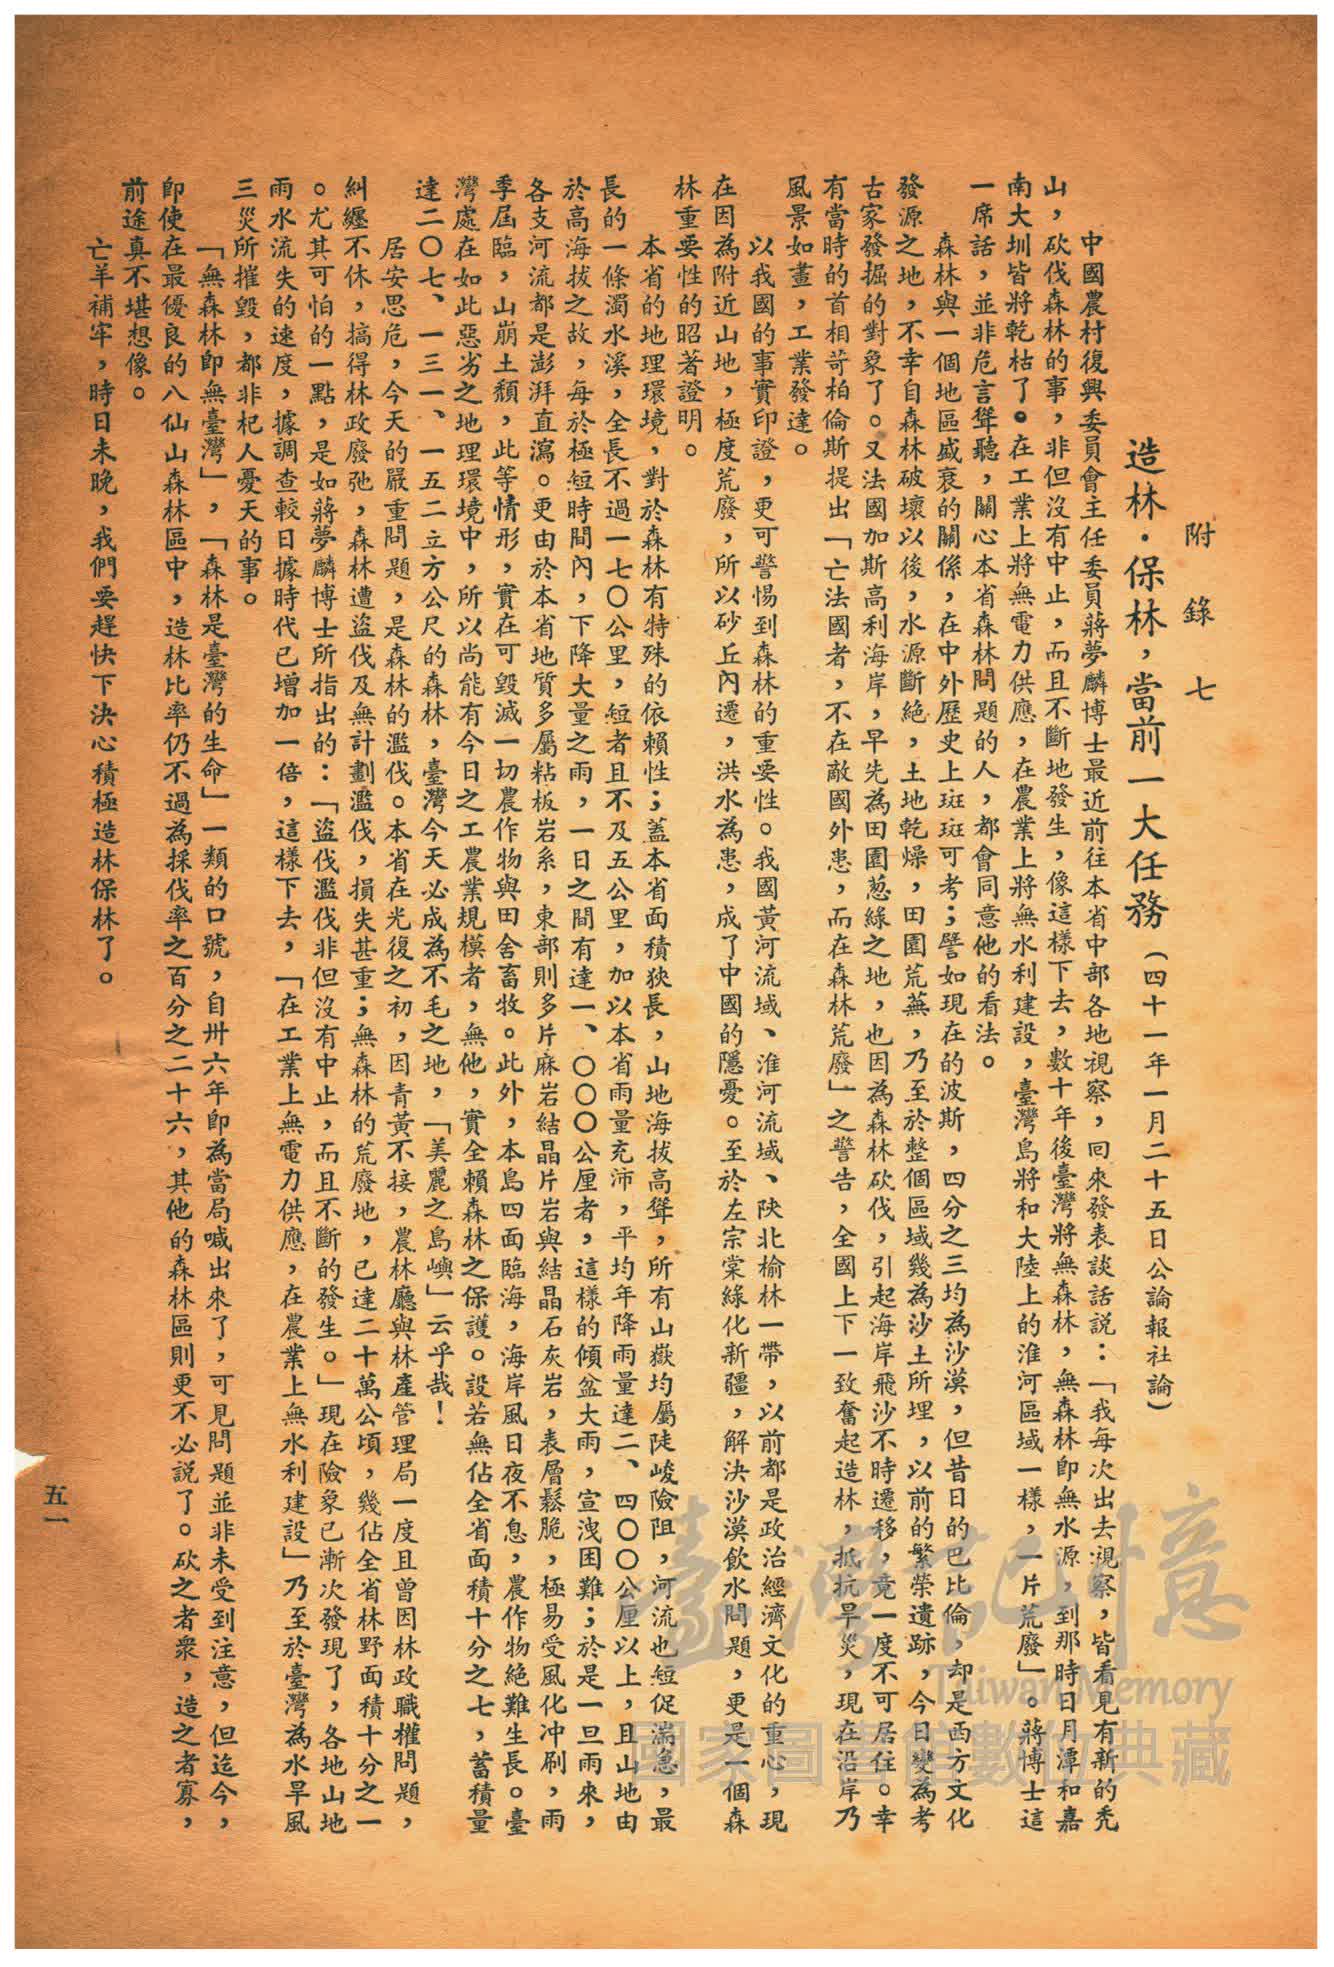 附錄七
造林・保林，當前一大任務（四十一年一月二十五日公論報社論）
中國農村復興委員會主任委員蔣夢麟博士最近前往本省中部各地視察，回來發表談話説：「我每次出去視察，皆看見有新的禿
山，砍伐森林的事，非但沒有中止，而且不斷地發生，像這樣下去，數十年後臺灣將無森林，無森林即無水源，到那時日月潭和嘉
南大圳皆將乾枯了。在工業上將無電力供應，在農業上將無水利建設，臺灣島將和大陸上的淮河區域一樣，一片荒廢」。蔣博士這
一席話，並非危言聳聽，關心本省森林問題的人，都會同意他的看法。
森林與一個地區盛衰的關係，在中外歷史上斑斑可考；譬如現在的波斯，四分之三均為沙漠，但昔日的巴比倫，却是西方文化
發源之地，不幸自森林破壞以後，水源斷絕，土地乾燥，田園荒蕪，乃至於整個區域幾為沙土所埋，以前的繁榮遺跡，今日變為考
古家發掘的對象了。又法國加斯高利海岸，早先為田園葱綠之地，也因為森林砍伐，引起海岸飛沙不時遷移，竟一度不可居住。幸
有當時的首相苛柏倫斯提出「亡法國者，不在敵國外患，而在森林荒廢」之警告，全國上下一致奮起造林，抵抗旱災，現在沿岸乃
風景如畫，工業發達。
以我國的事實印證，更可警惕到森林的重要性。我國黃河流域、淮河流域、陝北榆林一帶，以前都是政治經濟文化的重心，現
在因為附近山地，極度荒廢，所以砂丘內遷，洪水為患，成了中國的隱憂。至於左宗棠綠化新疆，解決沙漠飲水問題，更是一個森
林重要性的昭著證明。
本省的地理環境，對於森林有特殊的依賴性；蓋本省面積狹長，山地海拔高聳，所有山嶽均屬陡峻險阻，河流也短促湍急，最
長的一條濁水溪，全長不過一七〇公里，短者且不及五公里，加以本省雨量充沛，平均年降雨量達二、四〇〇公厘以上，且山地由
於高海拔之故，每於極短時間內，下降大量之雨，一日之間有達一、〇〇〇公厘者，這樣的傾盆大雨，宣洩困難；於是一旦雨來，
各支河流都是澎湃直瀉。更由於本省地質多屬粘板岩系，東部則多片麻岩結晶片岩與結晶石灰岩，表層鬆脆，極易受風化冲刷，雨
季屆臨，山崩土頹，此等情形，實在可毀滅一切農作物與田舍畜牧。此外，本島四面臨海，海岸風日夜不息，農作物絕難生長。臺
灣處在如此惡劣之地理環境中，所以尚能有今日之工農業規模者，無他，實全賴森林之保護。設若無佔全省面積十分之七，蓄積量
達二〇七、一三一、一五二立方公尺的森林，臺灣今天必成為不毛之地，「美麗之島嶼」云乎哉！
居安思危，今天的嚴重問題，是森林的濫伐。本省在光復之初，因青黃不接，農林廳與林產管理局一度且曾因林政職權問題，
糾纏不休，搞得林政廢弛，森林遭盜伐及無計劃濫伐，損失甚重；無森林的荒廢地，已達二十萬公頃，幾佔全省林野面積十分之一
。尤其可怕的一點，是如蔣夢麟博士所指出的：「盜伐濫伐非但沒有中止，而且不斷的發生。」現在險象已漸次發現了，各地山地
雨水流失的速度，據調查較日據時代已增加一倍，這樣下去，「在工業上無電力供應，在農業上無水利建設」乃至於臺灣為水旱風
三災所摧毀，都非杞人憂天的事。
「無森林即無臺灣」，「森林是臺灣的生命」一類的口號，自卅六年即為當局喊出來了，可見問題並非未受到注意，但迄今，
即使在最優良的八仙山森林區中，造林比率仍不過為採伐率之百分之二十六，其他的森林區則更不必説了。砍之者衆，造之者寡，
前途真不堪想像。
亡羊補牢，時日未晚，我們要趕快下決心積極造林保林了。
五一
臺灣記憶
Taiwan Memory
國家圖書館數位典藏